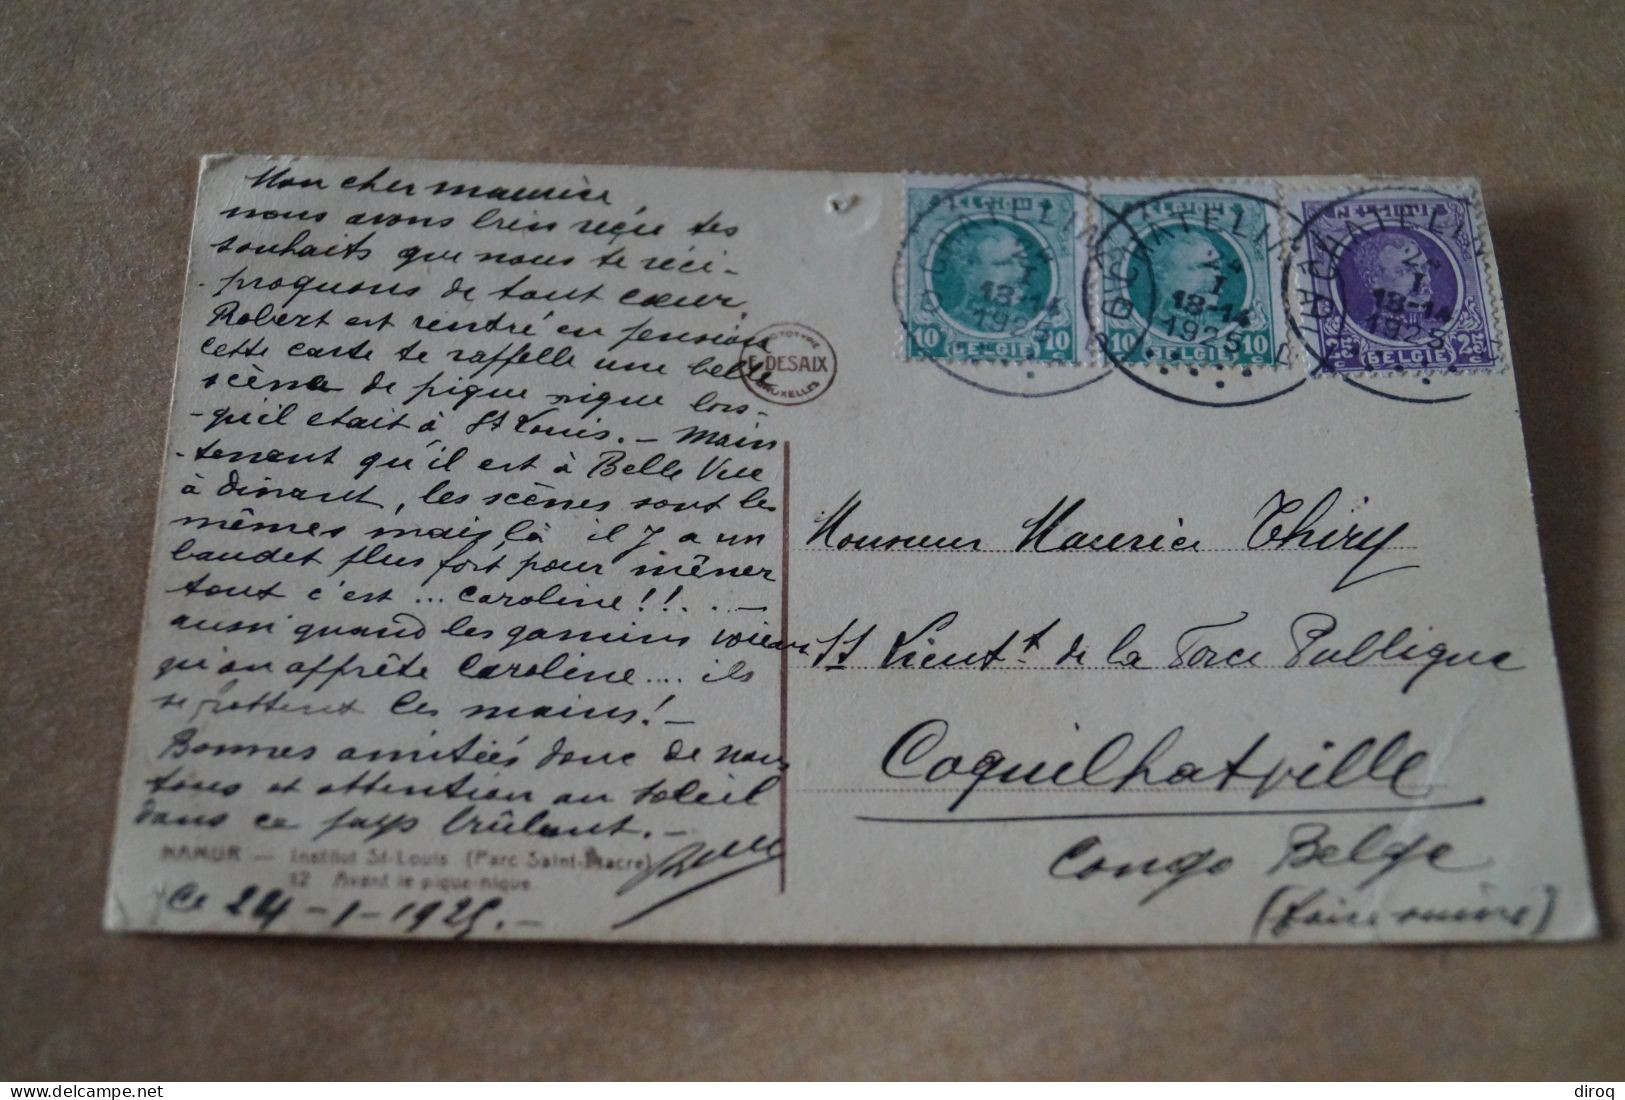 Mon cher Maurice
nous avons bien reçu tes
souhaits que nous te réci-
proquons de tout cœur.
Robert est rentré en pension
cette carte te rappelle une belle
scène de pique nique lors-
qu'il etait à St Louis. - Main
-tenant qu'il est à Belle Vue
à dinant, les scènes sont les
mêmes mais là il y a un
baudet plus fort pour mêner
tout c'est ... Caroline!!..-
aussi quand les gamins voient
qu'on apprête Caroline.... ils
se frottent les mains! -
Bonnes amitiés donc de nous
tous et attention au soleil
dans ce pays brûlant. -
NAMUR — Institut St-Louis (Parc Saint-Fiacre)
12 Avant le pique-nique
Ce 24-1-1925.-
PHOTOTYPIE
E. DESAIX
BRUXELLES
CHATELIN
18-14
1925
10 BELGIE 10
CHATELIN
I
18-14
1925
10 BELGIE 10
CHATELIN
I
18-14
1925
25 BELGIE 25
Monsieur Maurice Thiry
St Lieutt de la Force Publique
Coquilhatville
Congo Belge
(faire suivre)
diroq